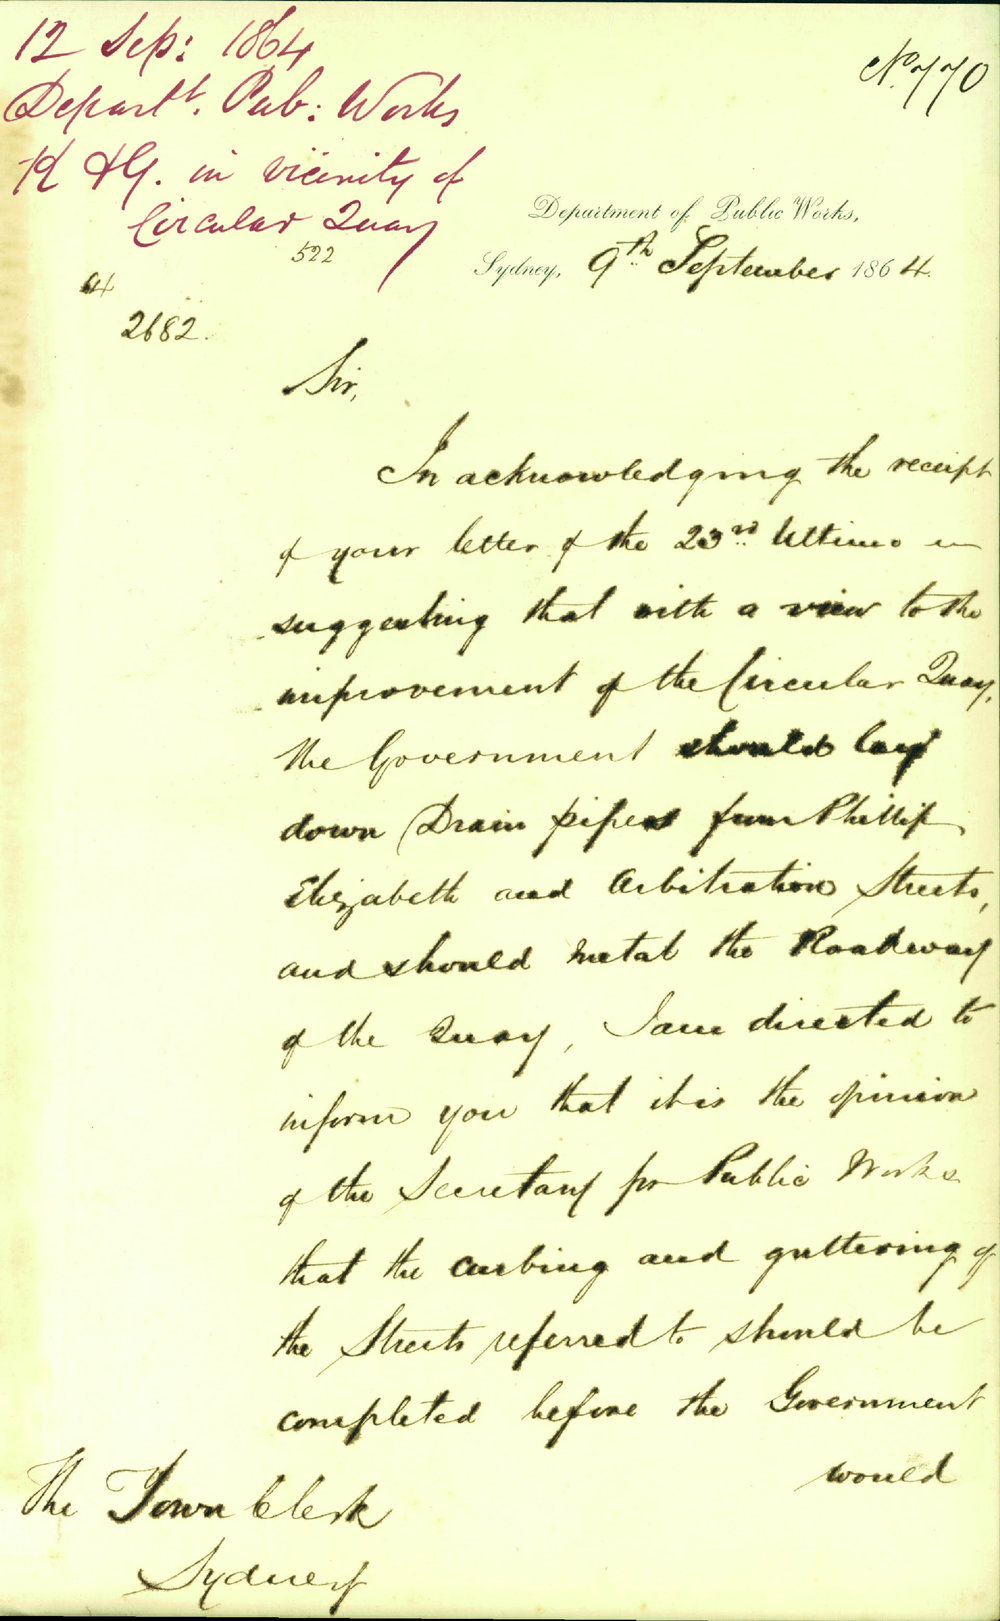 12 Sep: 1864
Departt. Pub: Works
K & G. in vicinity of
Circular Quay
No. 770
522
64
2682.
Department of Public Works,
Sydney, 9th September 1864.
Sir,
In acknowledging the receipt
of your letter of the 23rd Ultimo in
suggesting that with a view to the
improvement of the Circular Quay,
the Government should lay
down Drain pipes from Phillip
Elizabeth and Arbitration Streets,
and should metal the Roadway
of the Quay, I am directed to
inform you that it is the opinion
of the Secretary for Public Works
that the curbing and guttering of
the Streets referred to should be
completed before the Government
would
The Town Clerk
Sydney